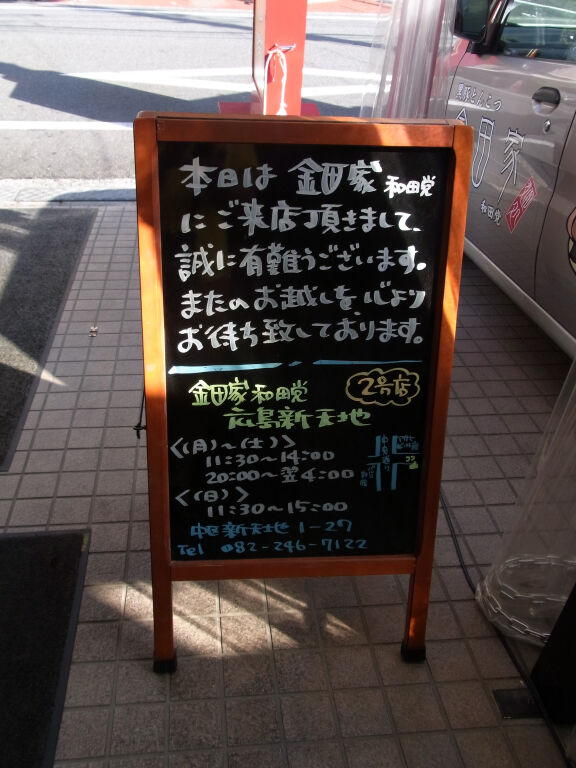 本日は 金田家 和田党
にご来店頂きまして、
誠に有難うございます。
またのお越しを、心より
お待ち致しております。
金田家 和田党 2号店
広島新天地
<(月)~(土)>
11:30~14:00
20:00~翌4:00
<(日)>
11:30~15:00
中区新天地 1-27
Tel 082-246-7122
中央通り
ココ
黒豚とんこつ
田家
和田党